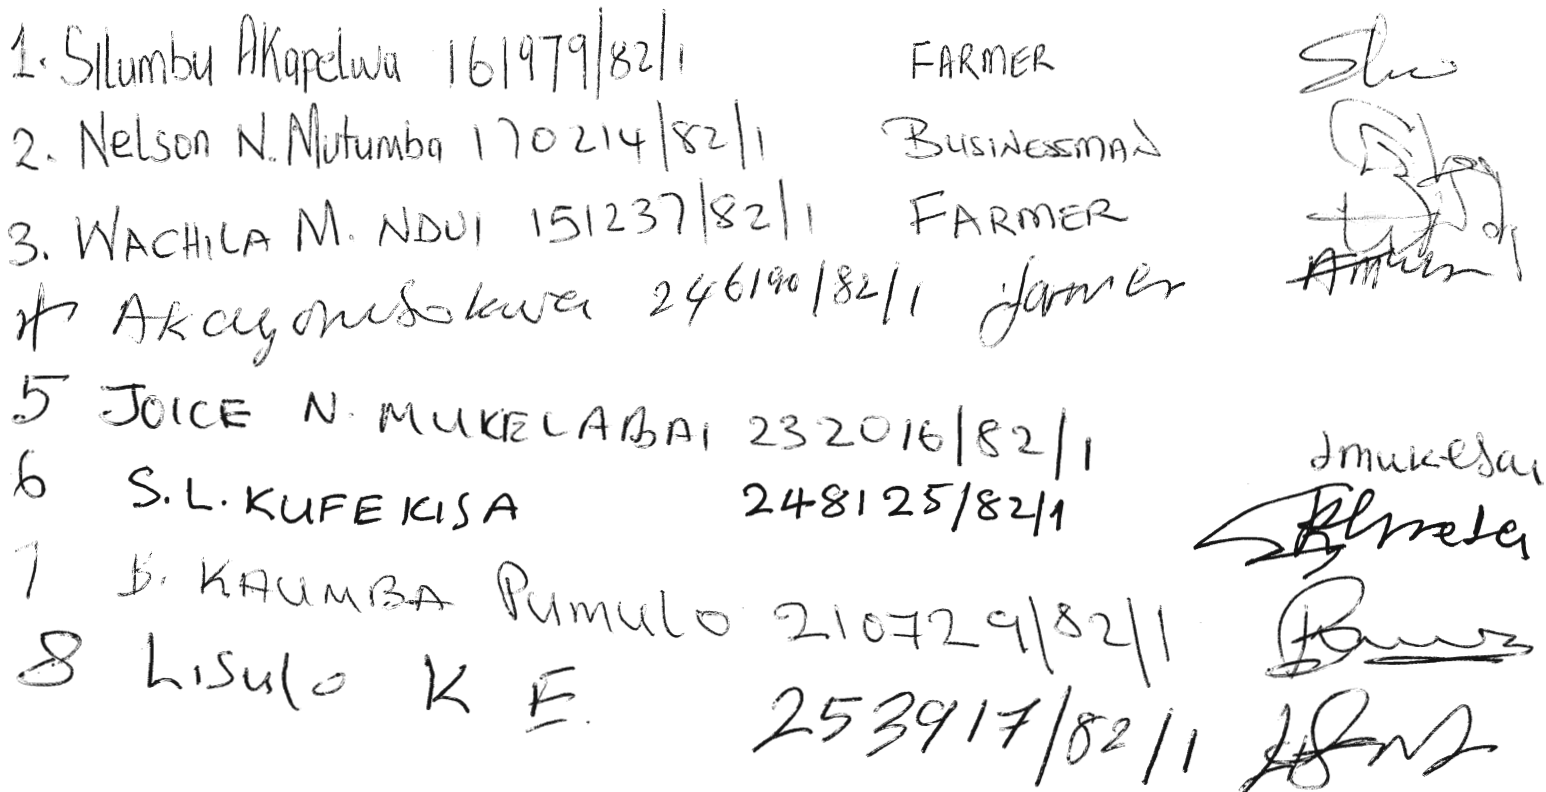 1. Silumbu Akapelwa 161979/82/1 FARMER
2. Nelson N. Mutumba 170214/82/1 BUSINESSMAN
3. WACHILA M. NDUI 151237/82/1 FARMER
4 246190/82/1 farmer
5 JOICE N. MUKELABAI 232016/82/1
6 S.L. KUFEKISA 248125/82/1
7 B. KAUMBA Pumulo 210729/82/1
8 Lisulo K E. 253917/82/1